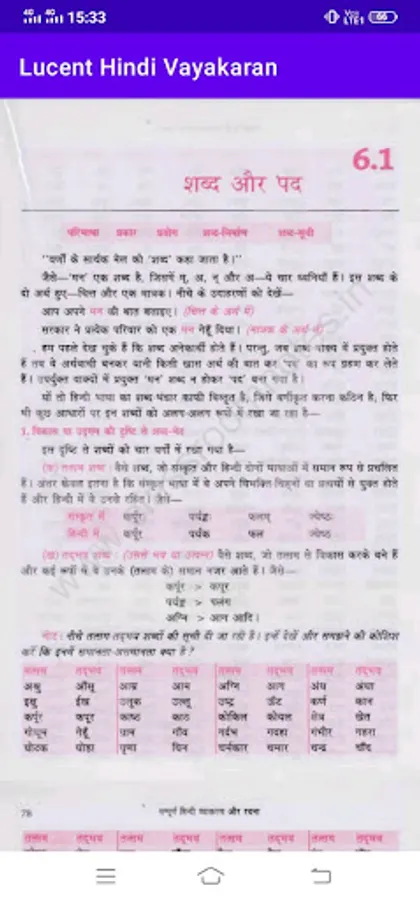 15:33
66
Lucent Hindi Vayakaran
6.1
शब्द और पद
परिभाषा प्रकार प्रयोग शब्द-निर्माण शब्द-सूची
"वर्णों के सार्थक मेल को 'शब्द' कहा जाता है।"
जैसे—'मन' एक शब्द है, जिसमें म्, अ, न् और अ—ये चार ध्वनियाँ हैं। इस शब्द के
दो अर्थ हुए—चित्त और एक मात्रक। नीचे के उदाहरणों को देखें—
आप अपने मन की बात बताइए। (चित्त के अर्थ में)
सरकार ने प्रत्येक परिवार को एक मन गेहूँ दिया। (मात्रक के अर्थ में)
हम पहले देख चुके हैं कि शब्द अनेकार्थी होते हैं। परन्तु, जब शब्द वाक्य में प्रयुक्त होते
हैं तब वे अर्थवाची बनकर यानी किसी खास अर्थ की बात कर 'पद' का रूप ग्रहण कर लेते
हैं। उपर्युक्त वाक्यों में प्रयुक्त 'मन' शब्द न होकर 'पद' बना गया है।
यों तो हिन्दी भाषा का शब्द-भंडार काफी विस्तृत है, जिसे वर्गीकृत करना कठिन है, फिर
भी कुछ आधारों पर इन शब्दों को अलग-अलग रूपों में रखा जा रहा है—
1. विकास या उद्गम की दृष्टि से शब्द-भेद
इस दृष्टि से शब्दों को चार वर्गों में रखा गया है—
(क) तत्सम शब्द : वैसे शब्द, जो संस्कृत और हिन्दी दोनों भाषाओं में समान रूप से प्रचलित
हैं। अंतर केवल इतना है कि संस्कृत भाषा में वे अपने विभक्ति-चिह्नों या प्रत्ययों से युक्त होते
हैं और हिन्दी में वे उनसे रहित। जैसे—
संस्कृत में कर्पूरः पर्यङ्कः फलम् ज्येष्ठः
हिन्दी में कर्पूर पर्यंक फल ज्येष्ठ
(ख) तद्भव शब्द : (उससे भव या उत्पन्न) वैसे शब्द, जो तत्सम से विकास करके बने हैं
और कई रूपों में वे उनके (तत्सम के) समान नजर आते हैं। जैसे—
कर्पूर > कपूर
पर्यङ्क > पलंग
अग्नि > आग आदि।
नोट : नीचे तत्सम-तद्भव शब्दों की सूची दी जा रही है। इन्हें देखें और समझने की कोशिश
करें कि इनमें समानता-असमानता क्या है?
तत्सम तद्भव तत्सम तद्भव तत्सम तद्भव तत्सम तद्भव
अश्रु आँसू आम्र आम अग्नि आग अंध अंधा
इक्षु ईख उलूक उल्लू उष्ट्र ऊँट कर्ण कान
कर्पूर कपूर काष्ठ काठ कोकिल कोयल क्षेत्र खेत
गोधूम गेहूँ ग्राम गाँव गर्दभ गदहा गंभीर गहरा
घोटक घोड़ा घृणा घिन चर्मकार चमार चन्द्र चाँद
78 सम्पूर्ण हिन्दी व्याकरण और रचना
तत्सम तद्भव तत्सम तद्भव तत्सम तद्भव तत्सम तद्भव